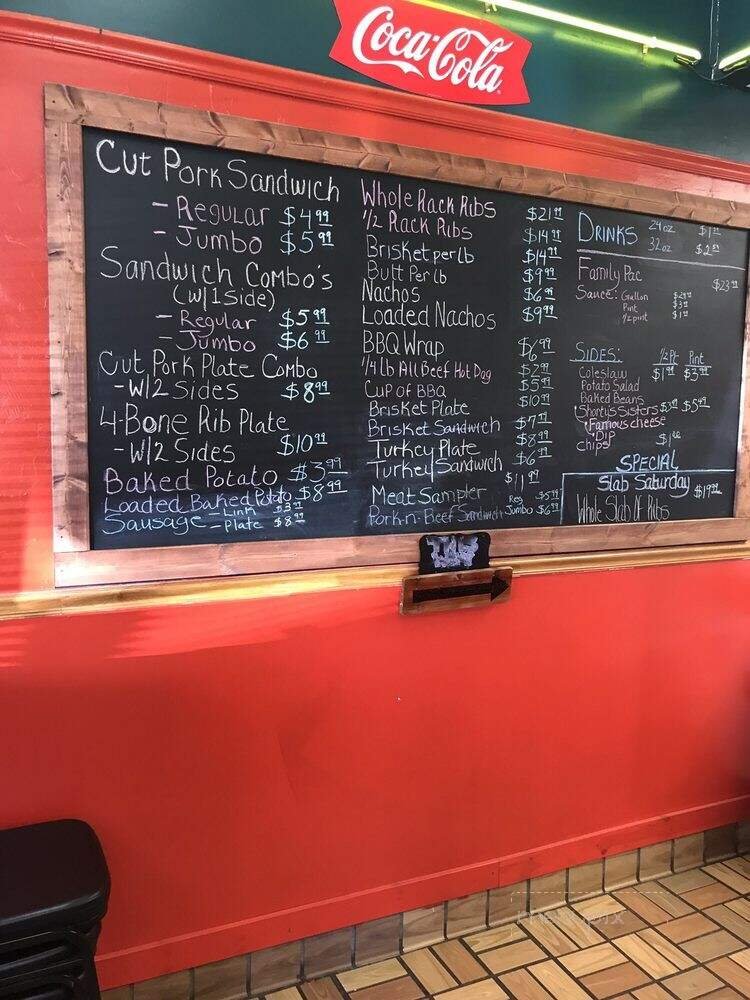 Coca-Cola
Cut Pork Sandwich
- Regular $4.99
- Jumbo $5.99
Sandwich Combo's
(w/1 side)
- Regular $5.99
- Jumbo $6.99
Cut Pork Plate Combo
- W/2 Sides $8.99
4-Bone Rib Plate
- W/2 Sides $10.99
Baked Potato $3.99
Loaded Baked Potato $8.99
Sausage - Link $3.99
- Plate $8.99
Whole Rack Ribs $21.99
1/2 Rack Ribs $14.99
Brisket per lb $14.99
Butt Per lb $9.99
Nachos $6.99
Loaded Nachos $9.99
BBQ Wrap $6.99
1/4 lb All Beef Hot Dog $2.99
Cup of BBQ $5.99
Brisket Plate $10.99
Brisket Sandwich $7.99
Turkey Plate $8.99
Turkey Sandwich $6.99
Meat Sampler $11.99
Pork-n-Beef Sandwich Reg $5.99
Jumbo $6.99
Drinks 24oz
32oz
Family Pac $23.99
Sauce: Gallon
Pint
1/2 pint
Sides: 1/2 Pt Pint
Coleslaw $1.99 $3.99
Potato Salad
Baked Beans
Shorty's Sisters $3.99 $5.99
Famous cheese
Dip
Chips
Special
Slab Saturday $19.99
Whole Slab Of Ribs